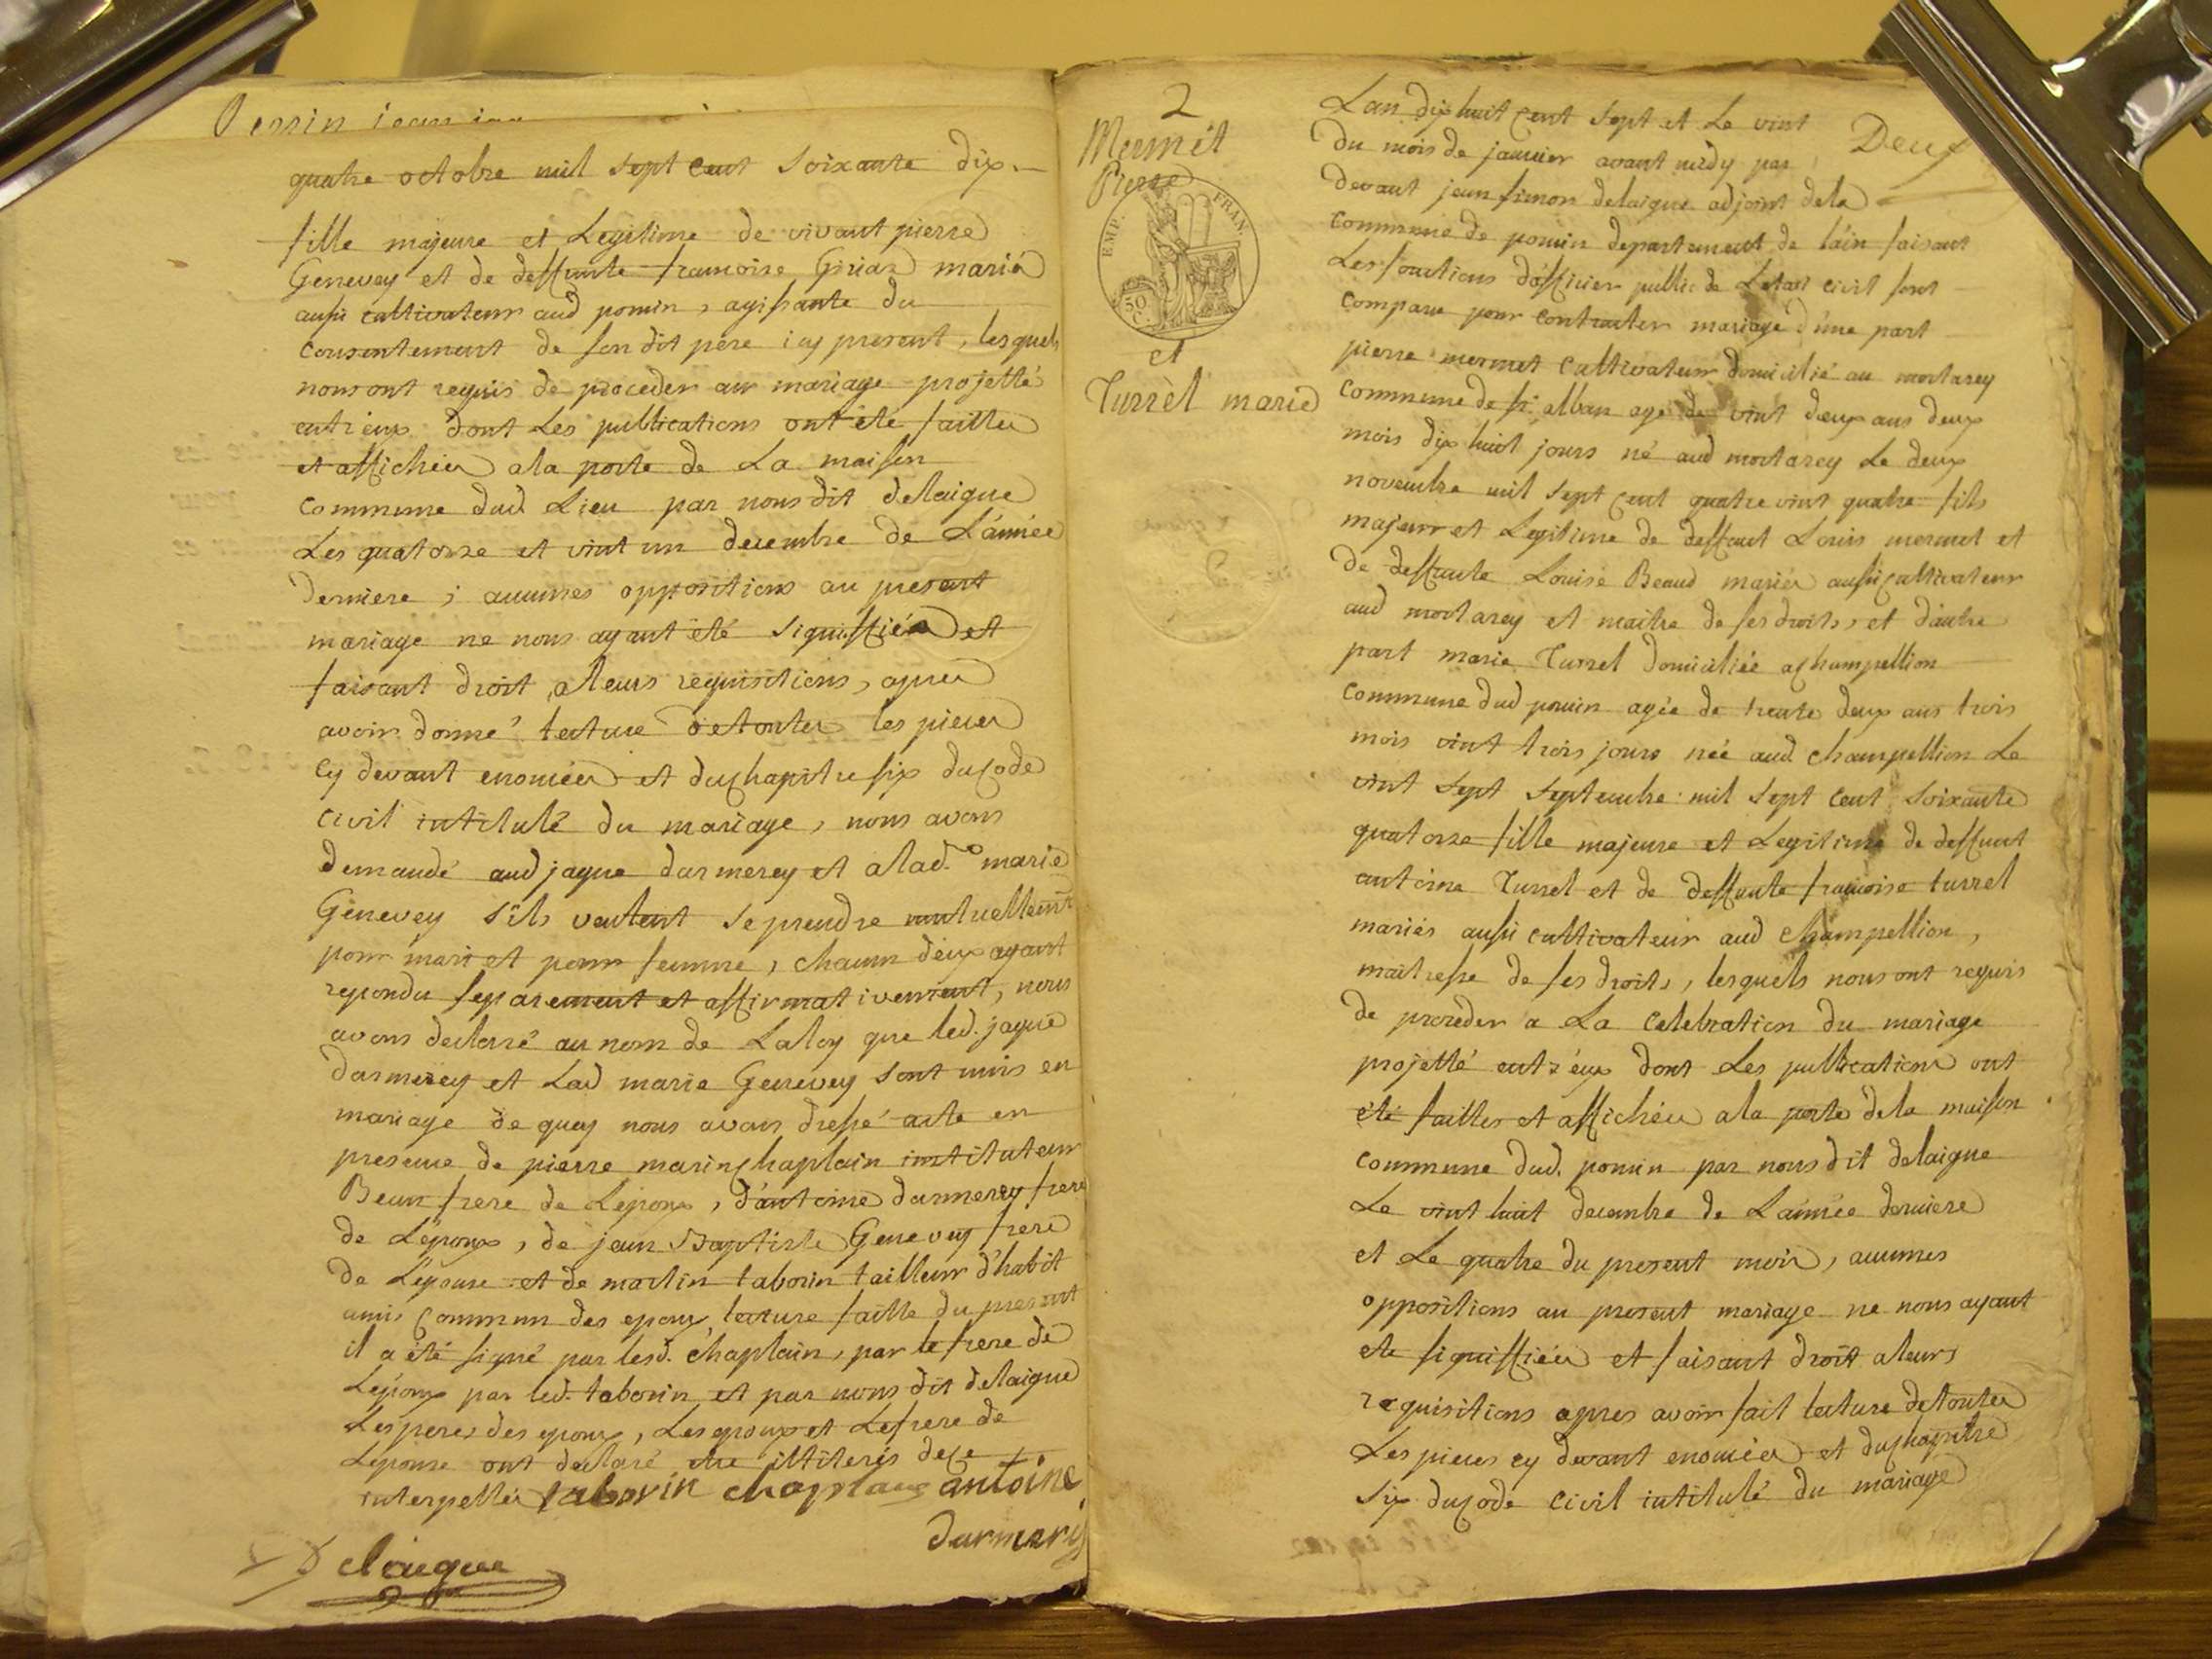 quatre octobre mil sept cent soixante dix
fille majeure et Legitime de vivant pierre
Genevey et de deffunte francoise Giriaz mariés
aussi cultivateur aud pomin, agissante du
consentement de son dit père icy present, lesquels
nous ont requis de proceder au mariage projetté
entrieux dont Les publications ont été faittes
et affichées a la porte de La maison
commune dud. Lieu par nous dit delaigue
Les quatorze et vint un decembre de L'année
derniere ; aucunes oppositions au present
mariage ne nous ayant été signiffiées et
faisant droit a leurs requisitions, apres
avoir donné lecture de toutes les pieces
cy devant enoncées et du chapitre six du code
civil intitulé du mariage, nous avons
demandé aud jaque darmerey et a lad. marie
Genevey s'ils veulent se prendre mutuellemt
pour mari et pour femme, chacun d'eux ayant
repondu separement et affirmativement, nous
avons declaré au nom de La loy que led. jaque
darmerey et Lad marie Genevey sont unis en
mariage de quoy nous avons dressé acte en
presence de pierre marin chaplain instituteur
Beau frere de Lepoux, d'antoine darmerey frere
de Lépoux, de jean Baptiste Genevey frere
de L'épouse et de martin taborin tailleur d'habit
amis commun des epoux lecture faitte du present
il a été signé par lesd. chaplain, par le frere de
Lépoux par led. taborin et par nous dit delaigue
Les peres des epoux, Les epoux et Le frere de
Lepouse ont declaré etre illiterés de ce
interpellés taborin chaplain antoine
darmerey
Delaigue
2
Mermèt
Pierre
EMP. FRAN.
50 C.
et
Turrèl marie
Deux
L'an dix huit cent sept et Le vint
du mois de janvier avant midy par
devant jean simon delaigue adjoint de la
commune de pomin departement de l'ain faisant
Les fonctions d'officier public de L'etat civil sont
comparu pour contracter mariage d'une part
pierre mermet cultivateur domicilié au mortarey
commune de st. alban agé de vint deux ans deux
mois dix huit jours né aud mortarey Le deux
novembre mil sept cent quatre vint quatre fils
majeur et Legitime de deffunt Louis mermet et
de deffunte Louise Beaud mariés aussi cultivateur
aud mortarey et maitre de ses droits, et d'autre
part marie Turrel domiciliée a champellion
commune dud pomin agée de trente deux ans trois
mois vint trois jours née aud champellion Le
vint sept septembre mil sept cent soixante
quatorze fille majeure et Legitime de deffunt
antoine Turrel et de deffunte francoise turrel
mariés aussi cultivateur aud champellion,
maitresse de ses droits, lesquels nous ont requis
de proceder a La celebration du mariage
projetté entr'eux dont Les publications ont
été faittes et affichées a la porte de la maison
commune dud. pomin par nous dit delaigue
Le vint huit decembre de L'année derniere
et Le quatre du present mois, aucunes
oppositions au present mariage ne nous ayant
ete signiffiées et faisant droit a leurs
requisitions apres avoir fait lecture de toutes
Les pieces cy devant enoncées et du chapitre
six du code civil intitulé du mariage